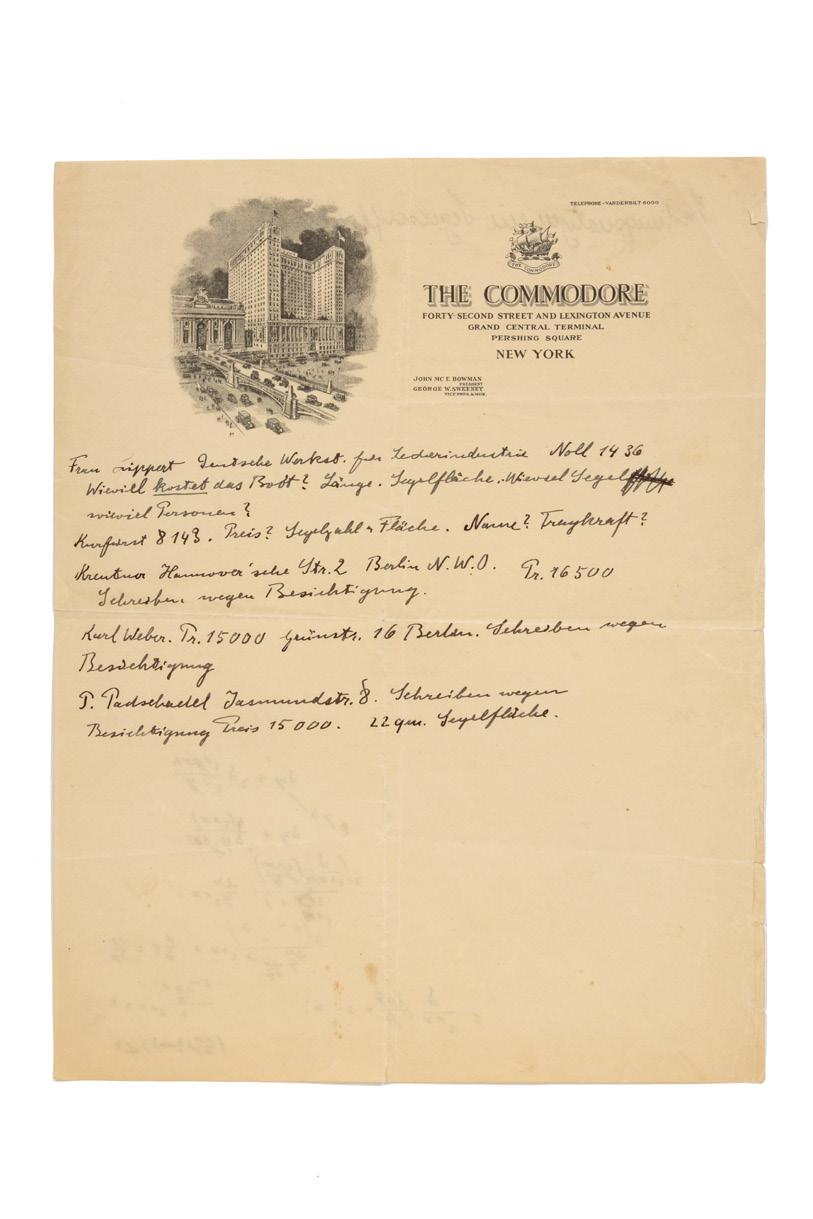 TELEPHONE - VANDERBILT 6000
THE COMMODORE
THE COMMODORE
FORTY-SECOND STREET AND LEXINGTON AVENUE
GRAND CENTRAL TERMINAL
PERSHING SQUARE
NEW YORK
JOHN MC E. BOWMAN
PRESIDENT
GEORGE W. SWEENEY
VICE PRES. & MGR.
Frau Lippert Deutsche Werkst. fuer Lederindustrie Noll 1436
Wieviel kostet das Boot? Länge. Segelfläche. Wieviel Segel
wieviel Personen?
Kurfürst 8143. Preis? Segelzahl & Fläche. Name? Tragkraft?
Hannover'sche Str. 2 Berlin N.W.O. Pr. 16500
Schreiben wegen Besichtigung.
Karl Weber. Pr. 15000 Grünstr. 16 Berlin. Schreiben wegen
Besichtigung
P. Jasmundstr. 8. Schreiben wegen
Besichtigung Preis 15000. 22 qm. Segelfläche.